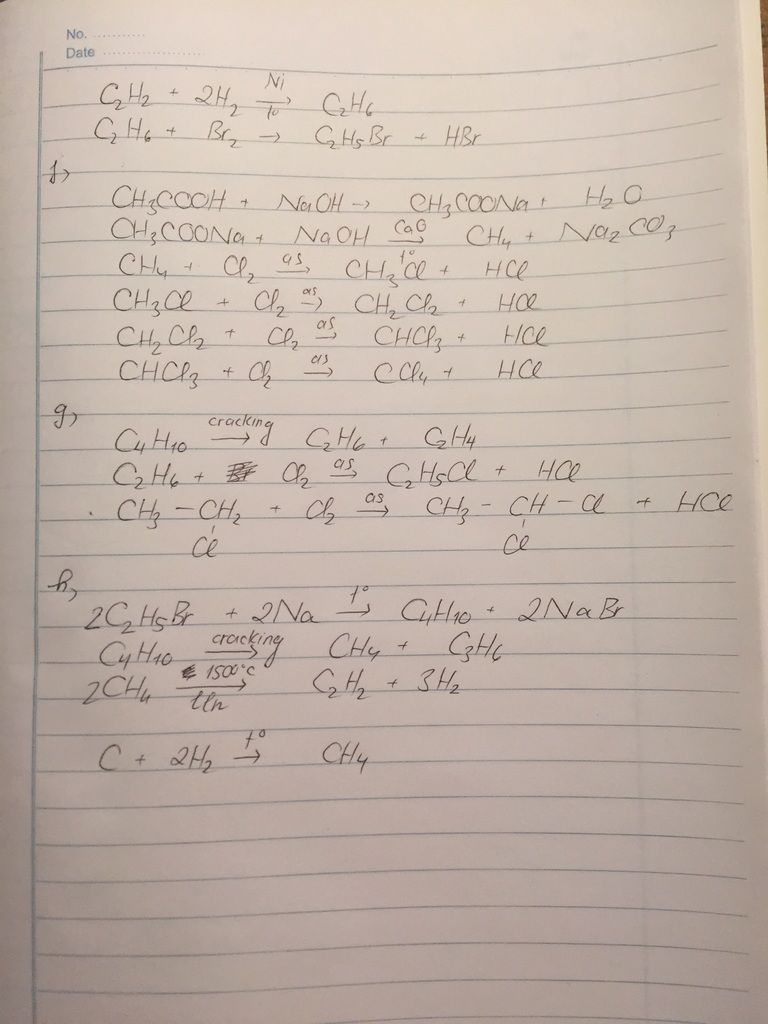 No. ...........
Date ......................
C₂H₂ + 2H₂ →[Ni][t°] C₂H₆
C₂H₆ + Br₂ → C₂H₅Br + HBr
f,
CH₃COOH + NaOH → CH₃COONa + H₂O
CH₃COONa + NaOH →[CaO][t°] CH₄ + Na₂CO₃
CH₄ + Cl₂ →[as] CH₃Cl + HCl
CH₃Cl + Cl₂ →[as] CH₂Cl₂ + HCl
CH₂Cl₂ + Cl₂ →[as] CHCl₃ + HCl
CHCl₃ + Cl₂ →[as] CCl₄ + HCl
g,
C₄H₁₀ →[cracking] C₂H₆ + C₂H₄
C₂H₆ + Cl₂ →[as] C₂H₅Cl + HCl
CH₃ – CH₂ + Cl₂ →[as] CH₃ – CH – Cl + HCl
Cl Cl
h,
2C₂H₅Br + 2Na →[t°] C₄H₁₀ + 2NaBr
C₄H₁₀ →[cracking] CH₄ + C₃H₆
2CH₄ →[1500°C][lln] C₂H₂ + 3H₂
C + 2H₂ →[t°] CH₄